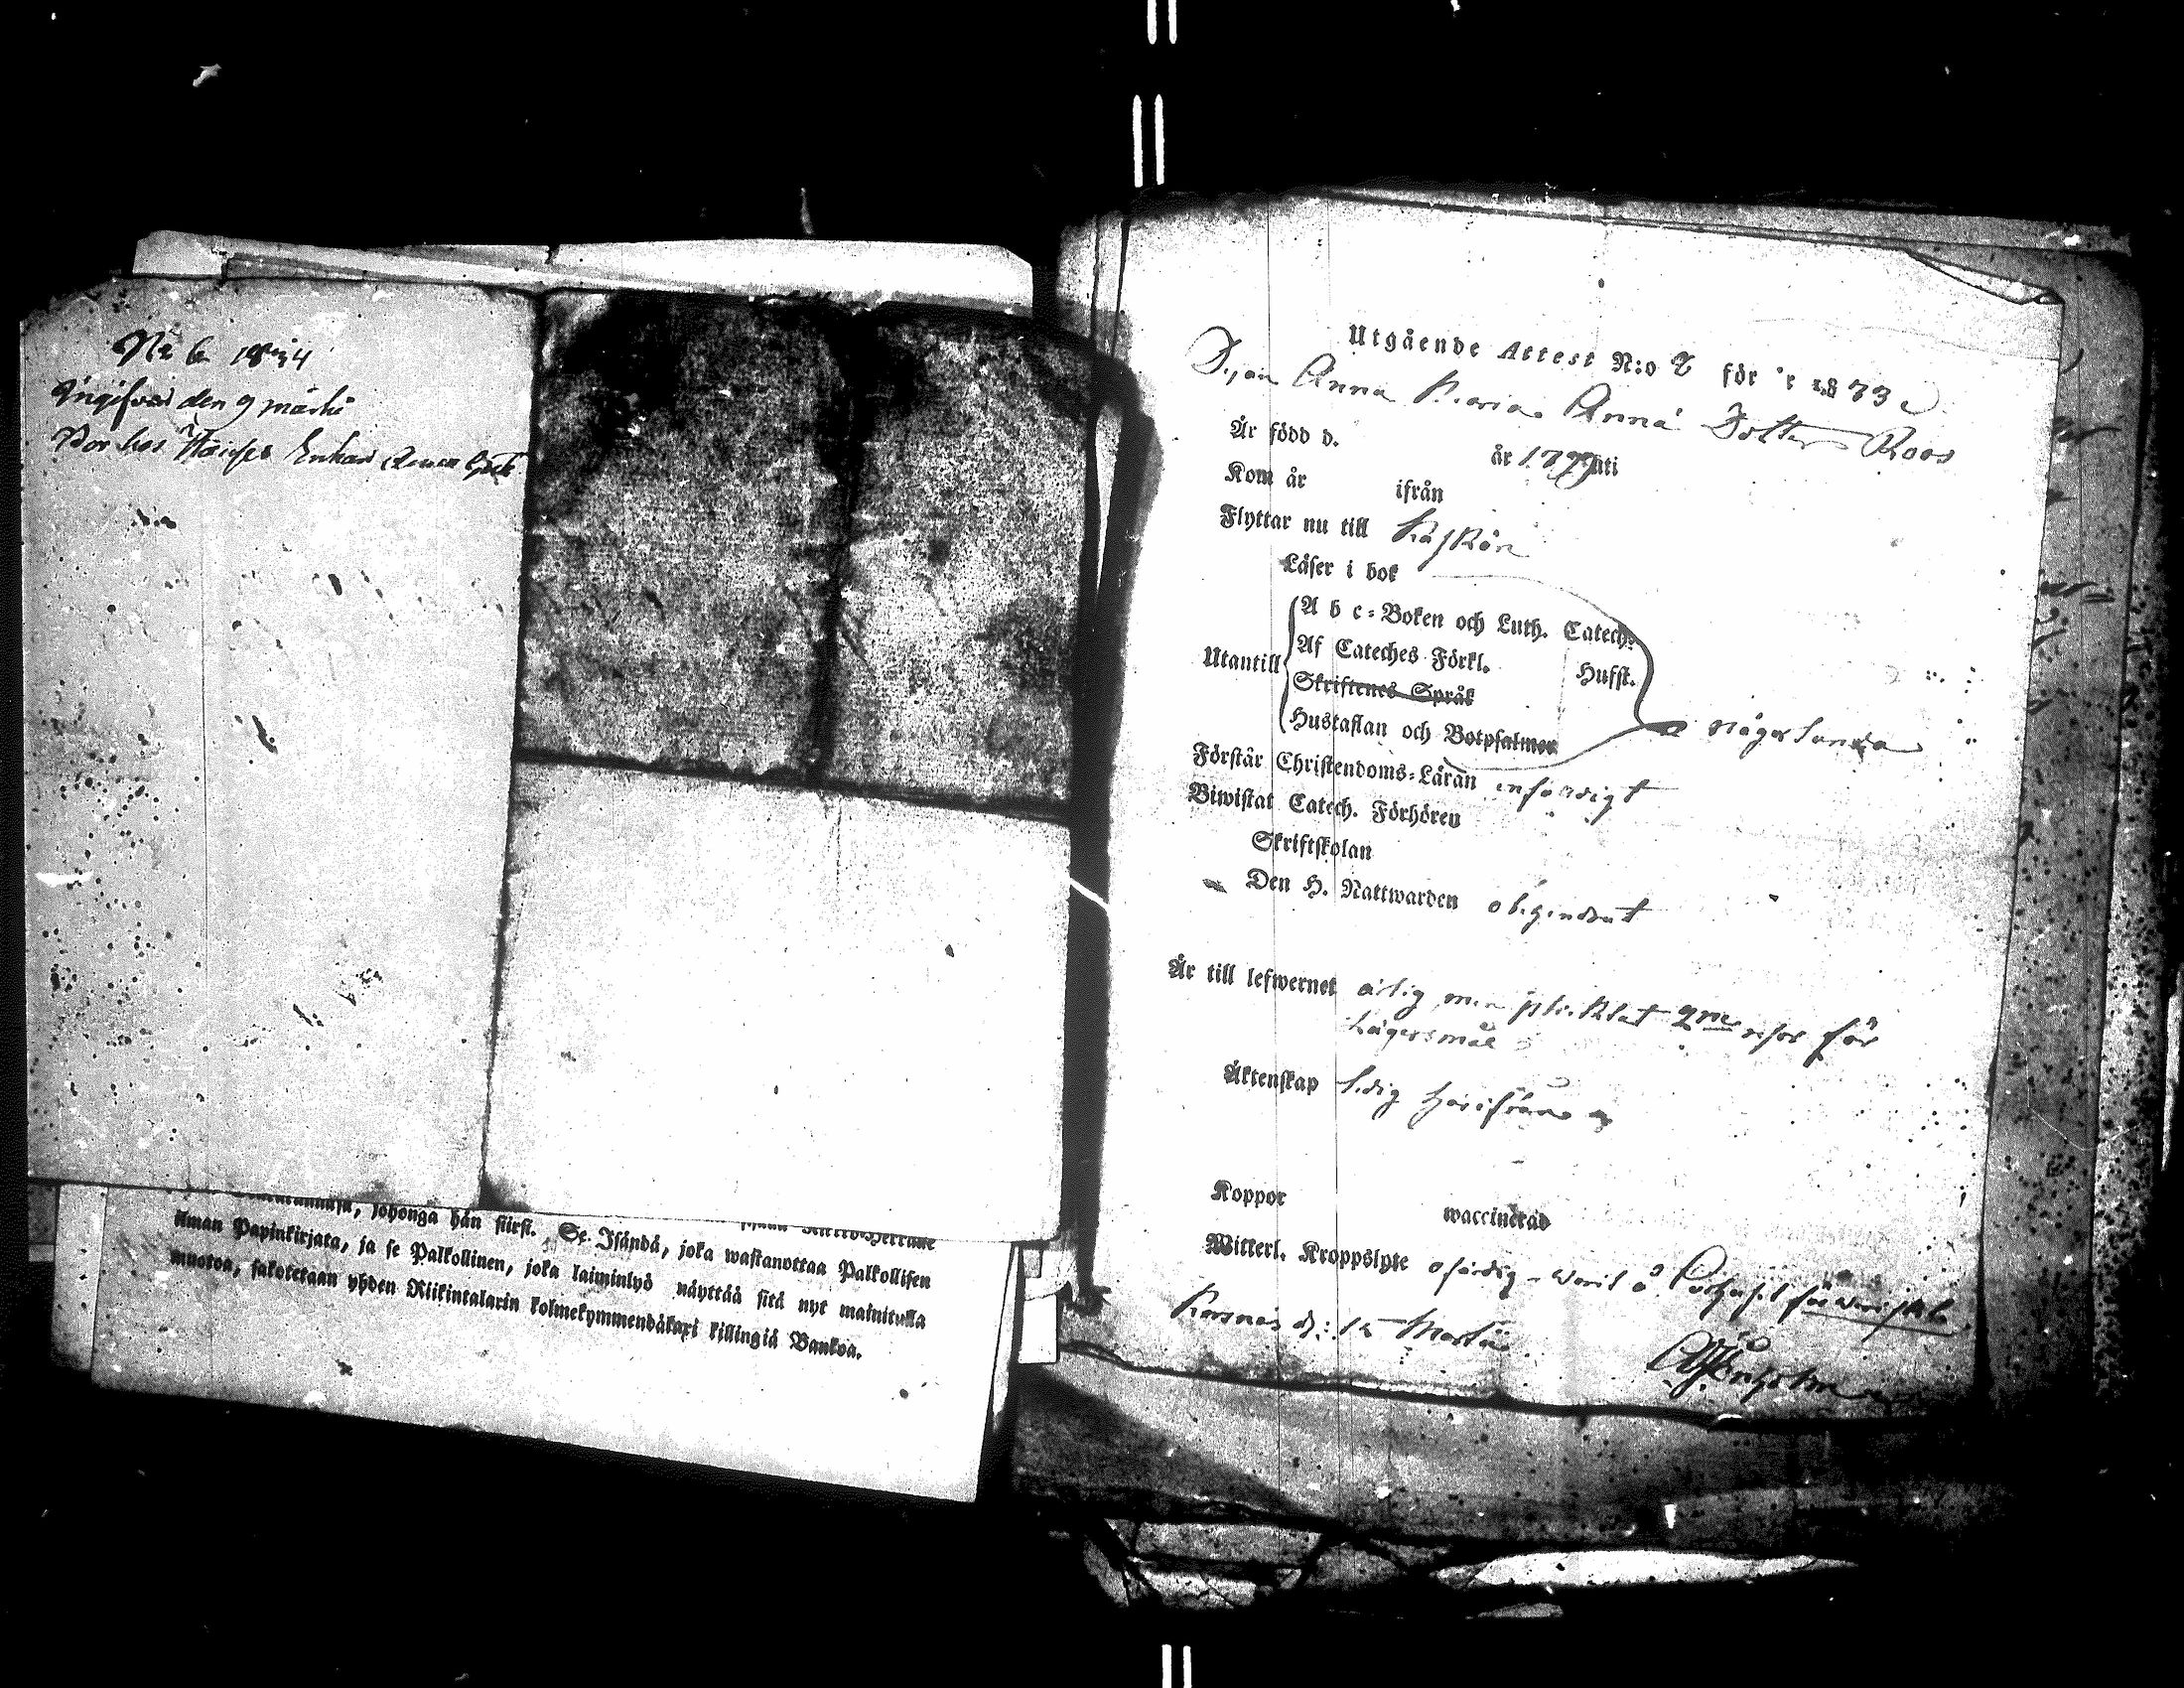 No 6 1834
Ingifvad den 9 Martii
Bor hos Enkan
johonga hån siirsi. Se Isändä, joka wastanottaa Palkollisen
ilman Papinkirjata, ja se Palkollinen, joka laiminlyö näyttää sitä nyt mainitulla
muotoa, sakotetaan yhden Riikintalarin kolmekymmendäkaxi killingiä Bankoa.
Utgående Attest N:o 2 för
Pigan Anna Maria Anna Dotter Roos
Är född d. år 1799 uti
Kom år ifrån
Flyttar nu till
Läser i bok
Utantill
A b c-Boken och Luth. Catech.
Af Cateches Förkl. Husst.
Skriftenes Språk
Hustaflan och Botpsalmer
någorlunda
Förstår Christendoms-Läran enfaldigt
Biwistat Catech. Förhören
Skriftskolan
Den H. Nattwarden obehindrat
Är till lefwernet ärlig men pliktat 2ne resor för
Lägersmål
Äktenskap ledig härifrån
Koppor waccinerad
Witterl. Kroppslyte ofärdig - warit å
Korsnäs d. 15 Martii